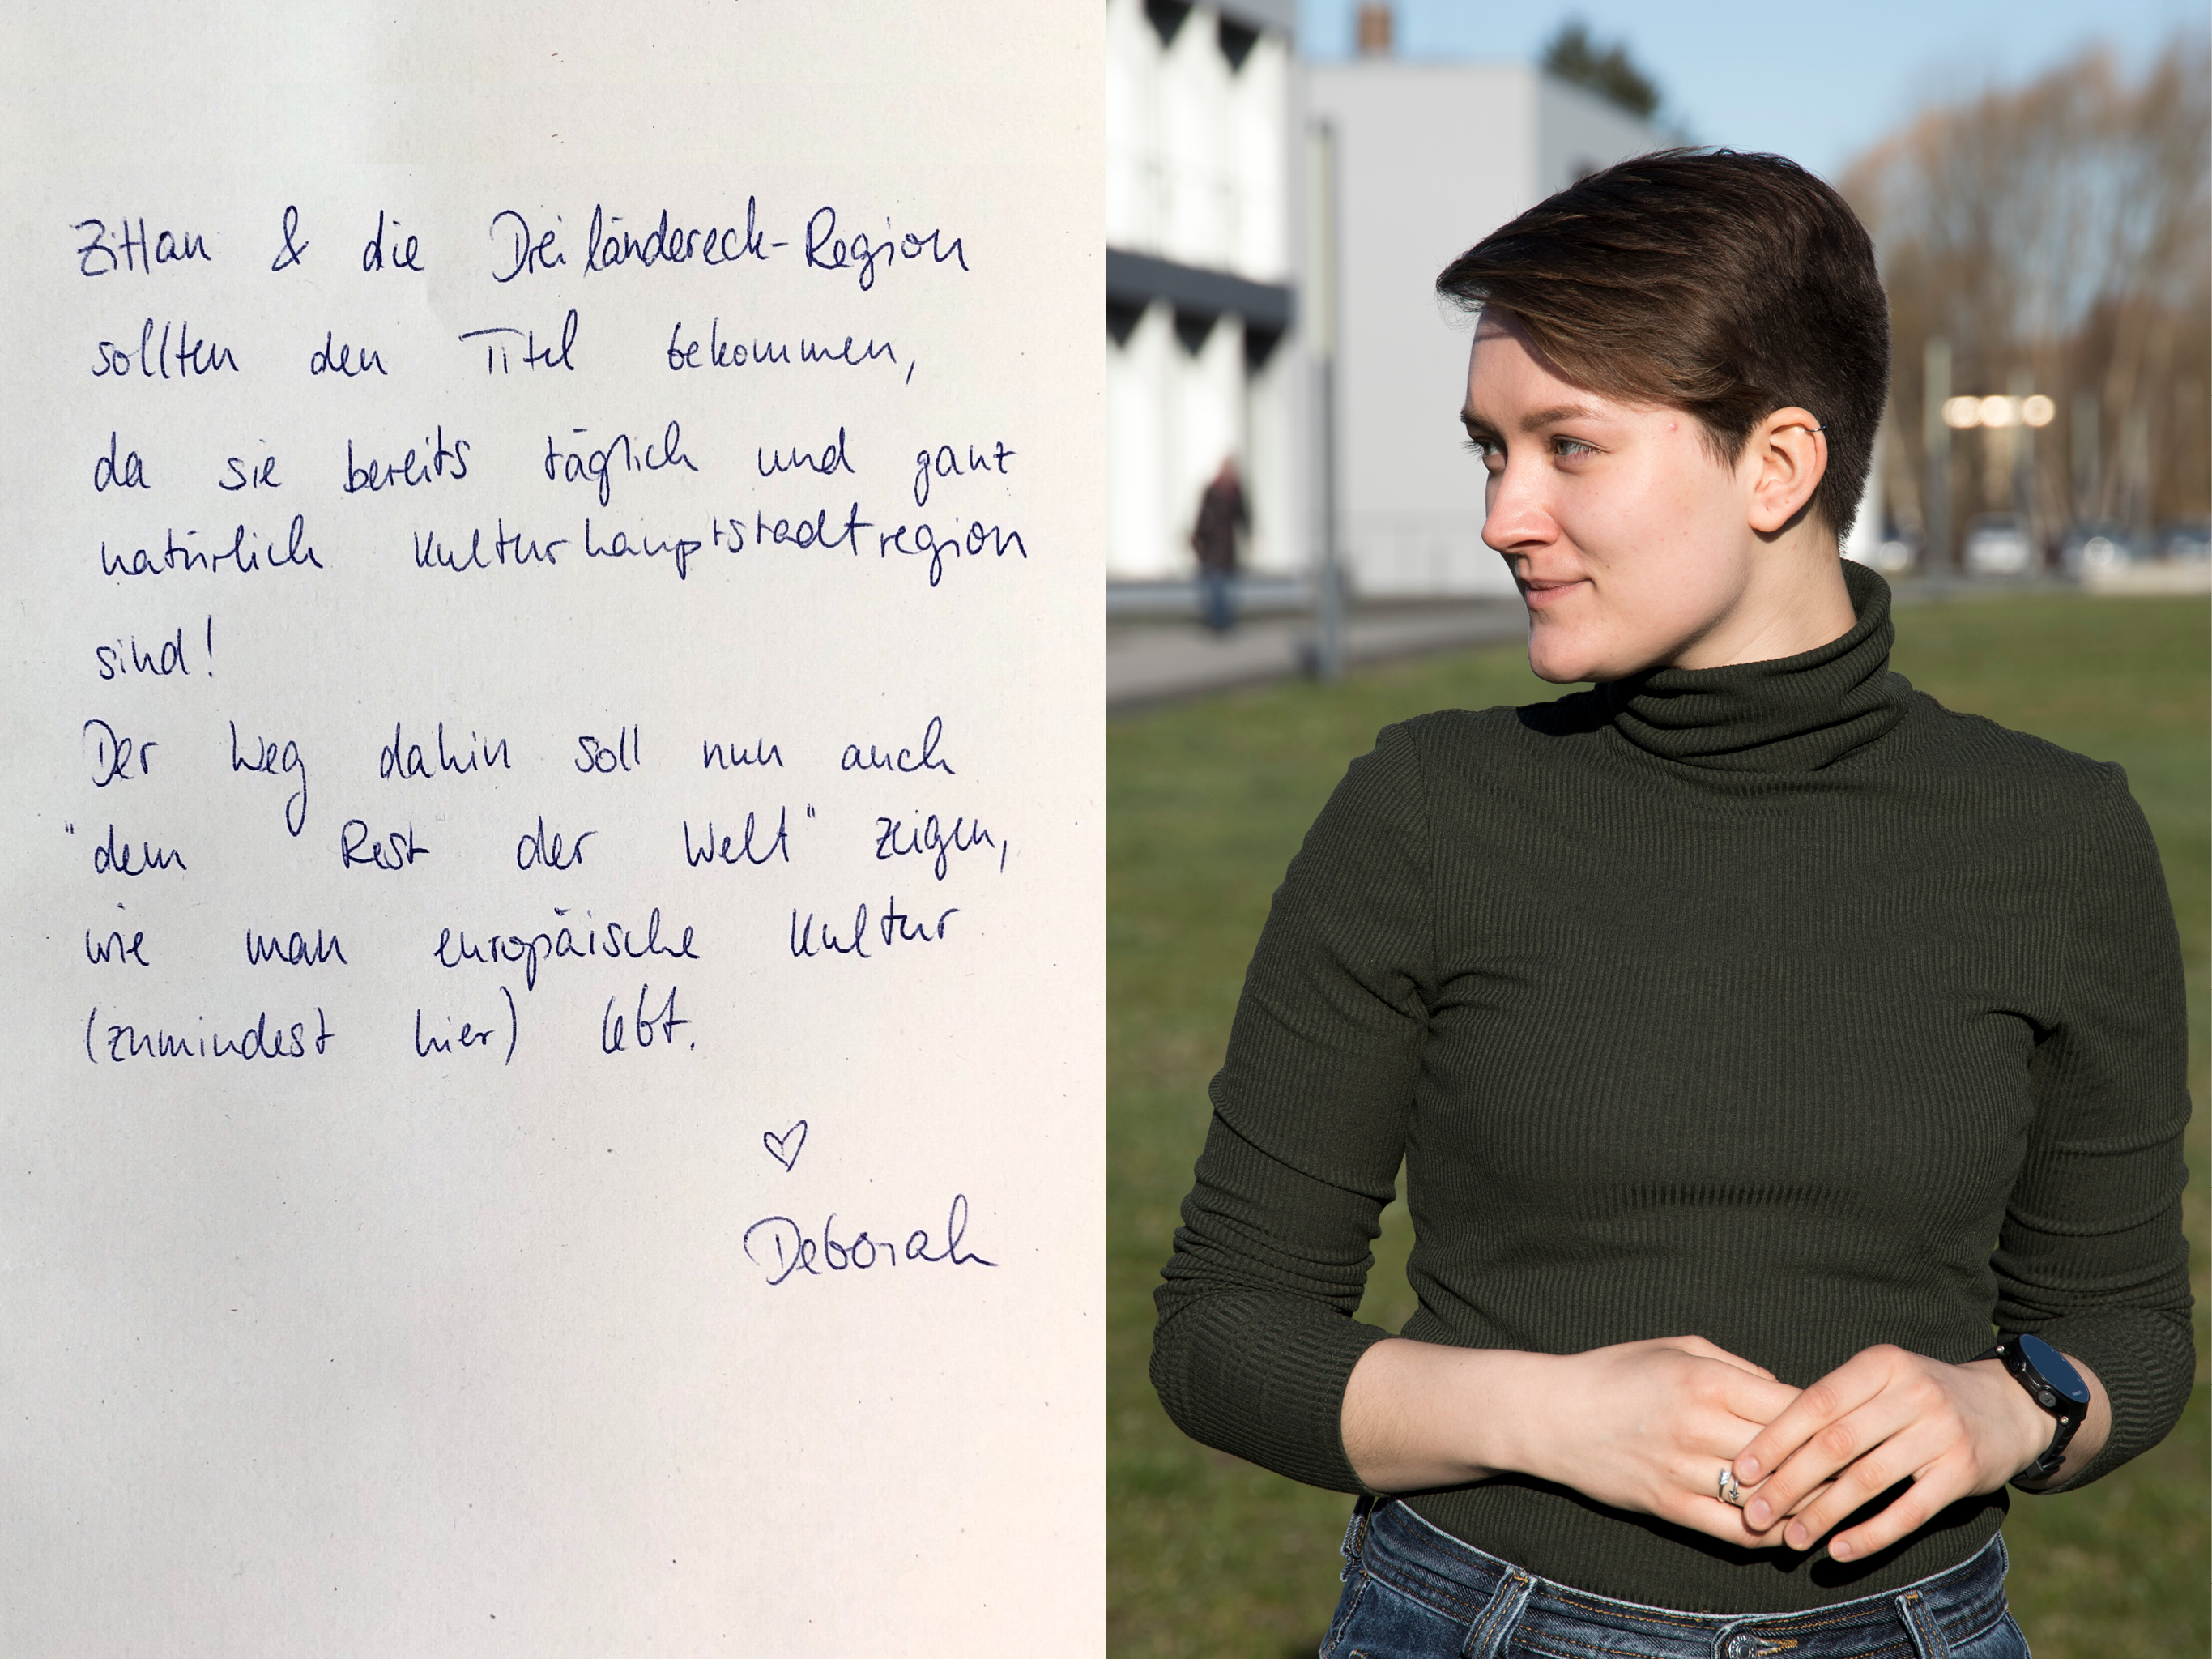 Zittau & die Dreiländereck-Region
sollten den Titel bekommen,
da sie bereits täglich und ganz
natürlich Kulturhauptstadtregion
sind!
Der Weg dahin soll nun auch
"dem Rest der Welt" zeigen,
wie man europäische Kultur
(zumindest hier) lebt.
♡
Deborah